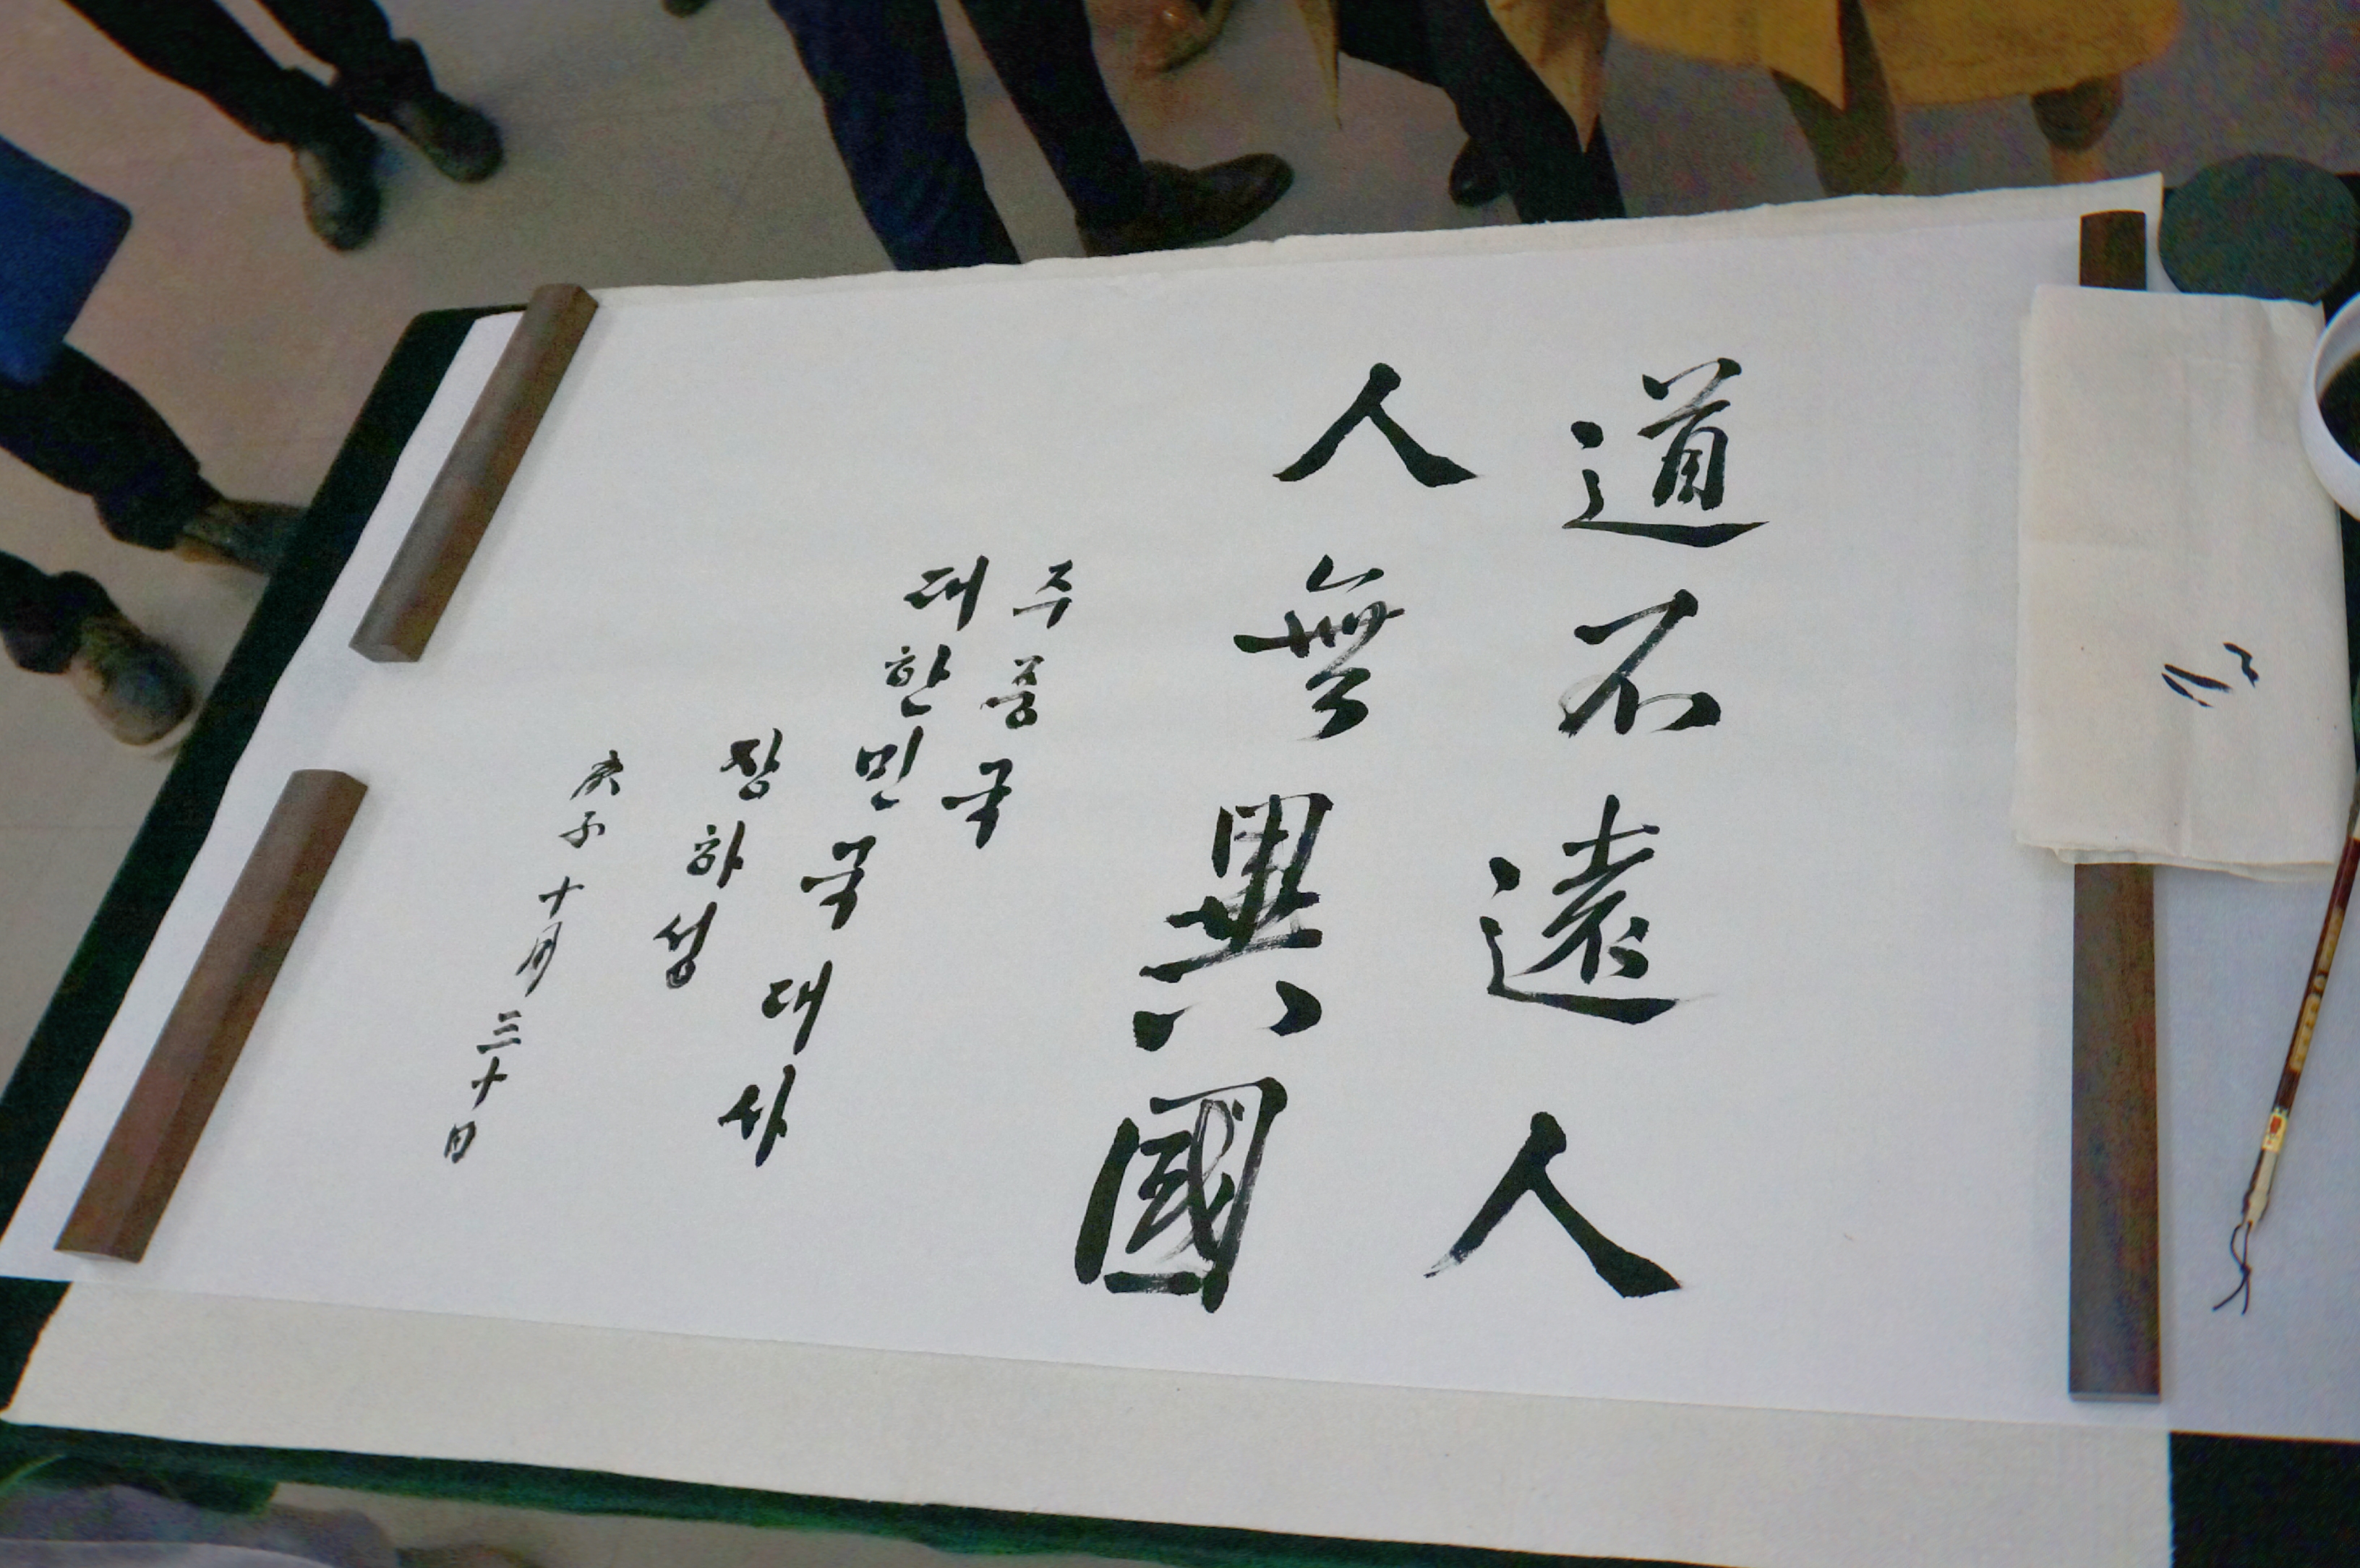 道不遠人
人無異國
주중국
대한민국대사
장하성
庚子十月三十日